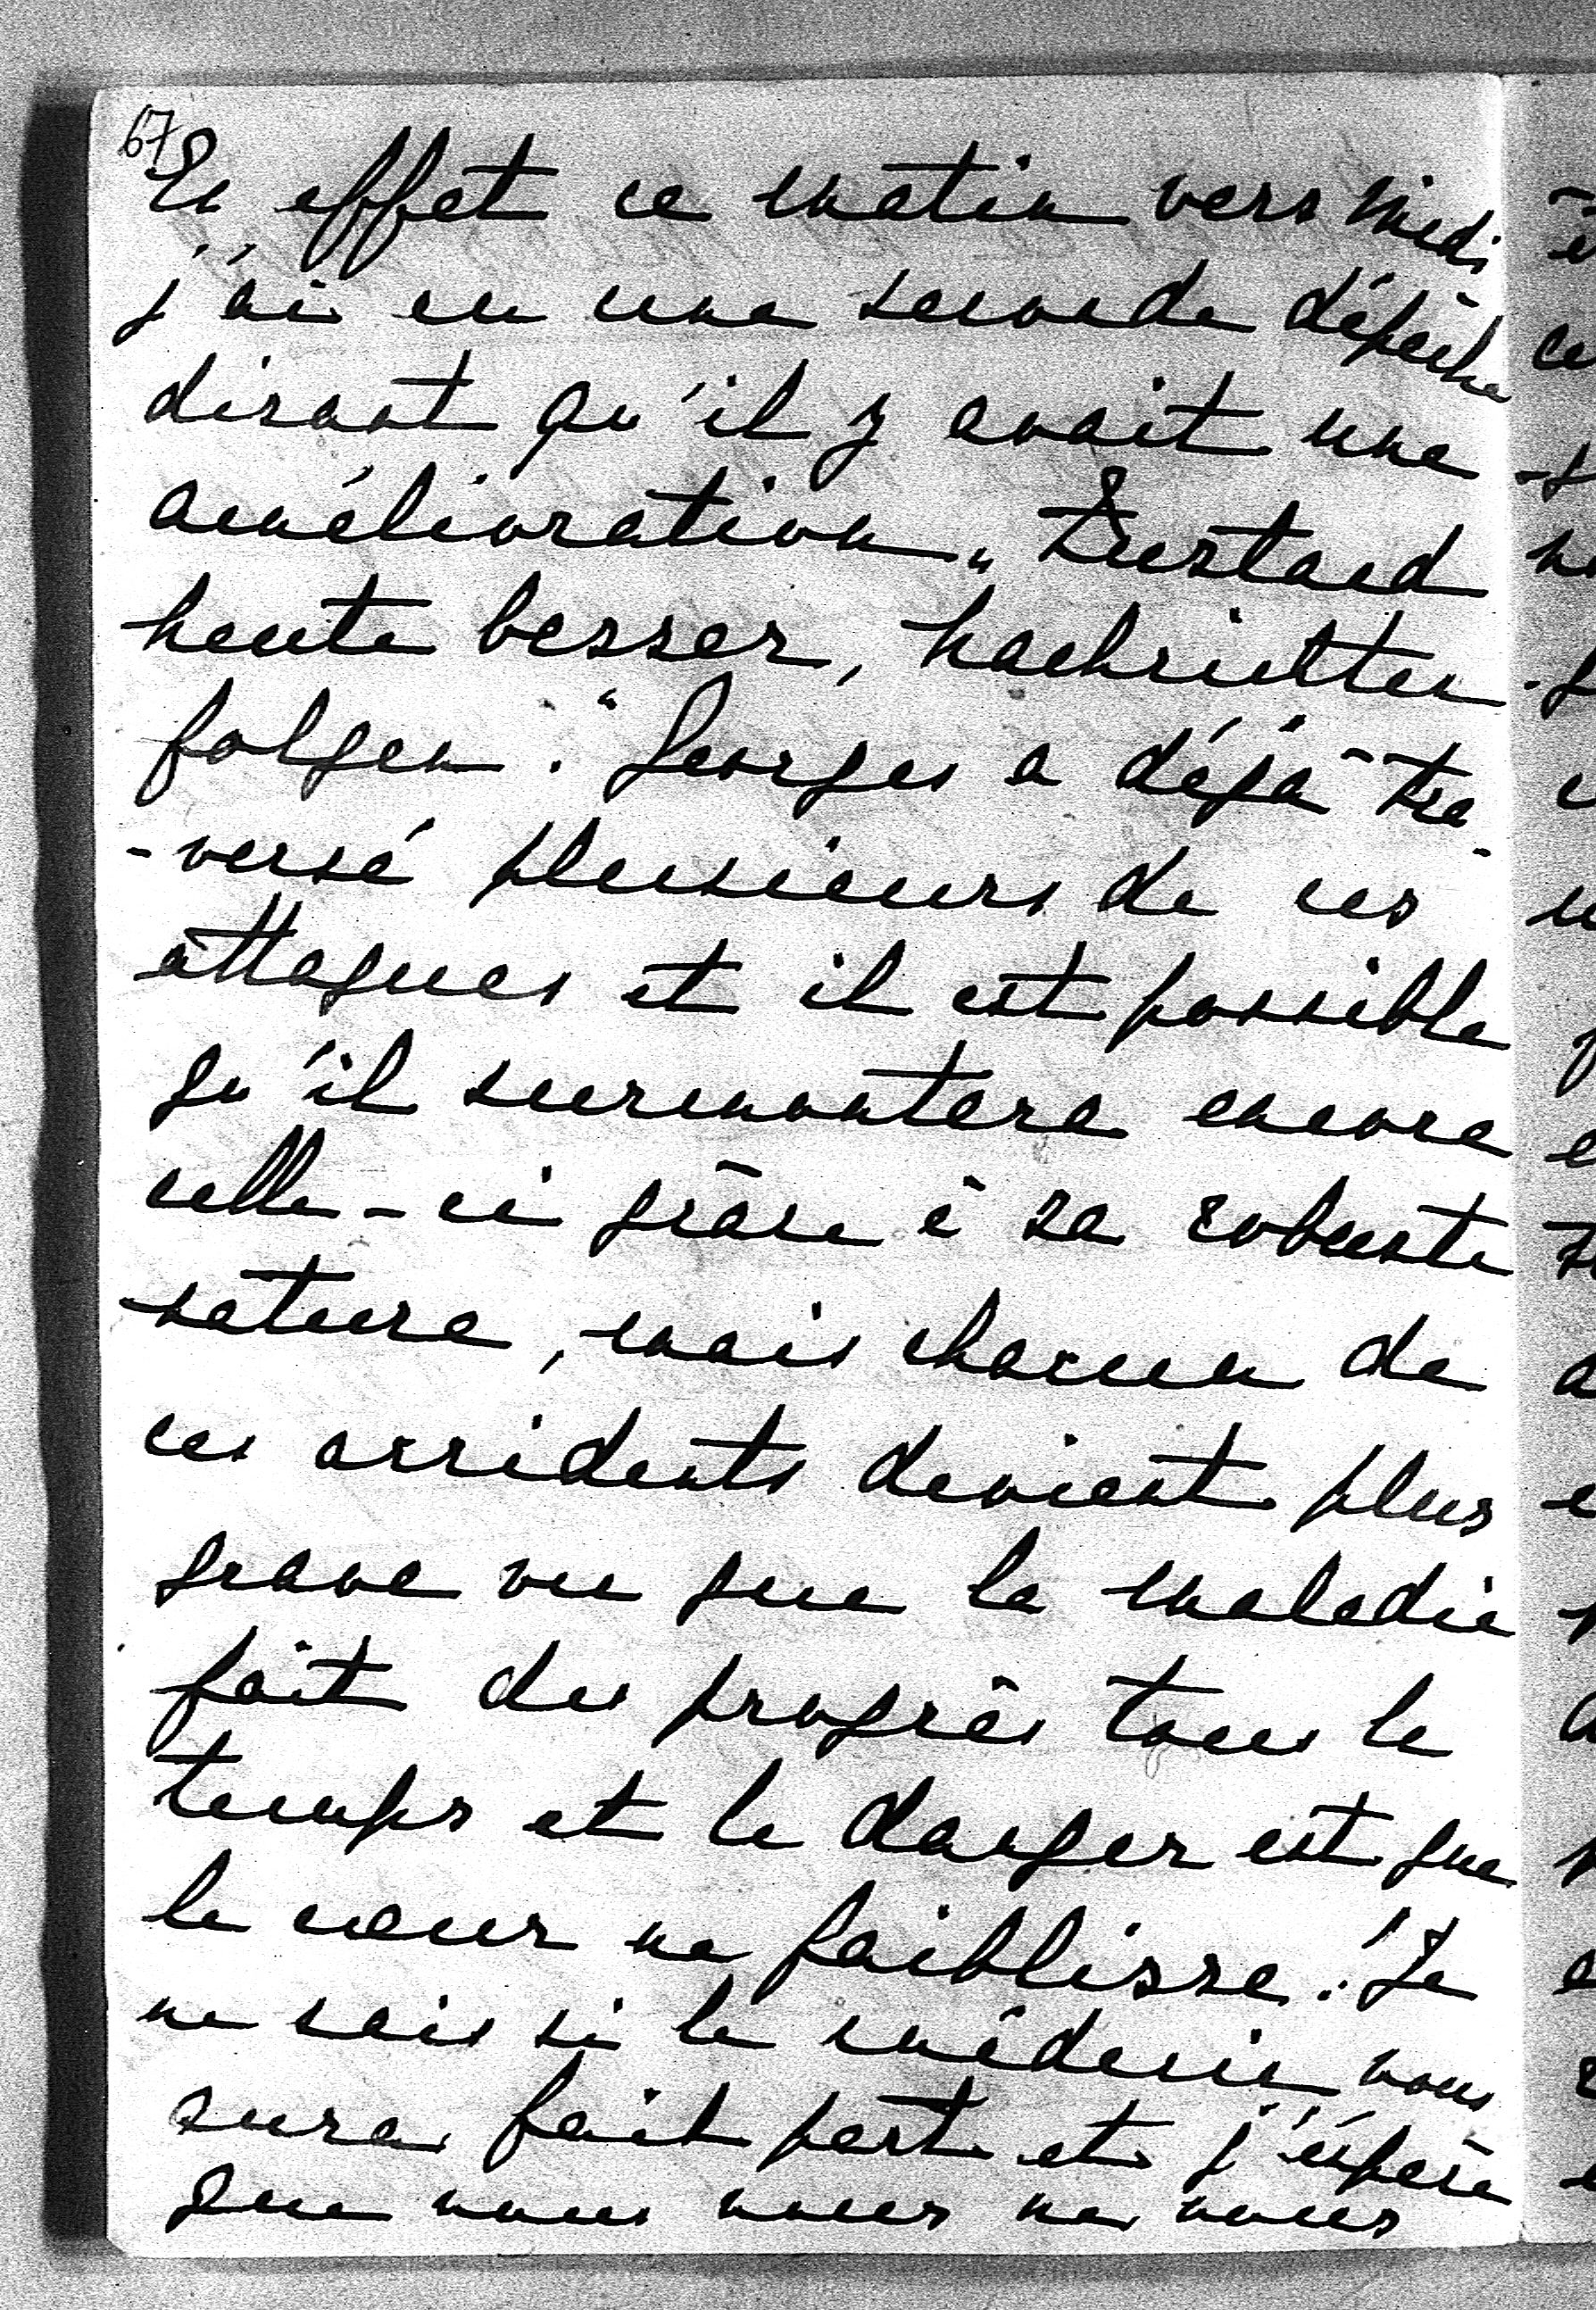 67
En effet ce matin vers midi
j'ai eu une seconde dépêche
disant qu'il y avait une
amélioration „ Zustand
heute besser, Nachrichten
folgen." Georges a déjà tra-
-versé plusieurs de ces
attaques et il est possible
qu'il surmontera encore
celle-ci grâce à sa robuste
nature, mais chacun de
ces accidents devient plus
grave vu que la maladie
fait des progrès tous le
temps et le danger est que
le cœur ne faiblisse! Je
ne sais si le médecin vous
aura fait part et j'éspère
que vous vous ne vous